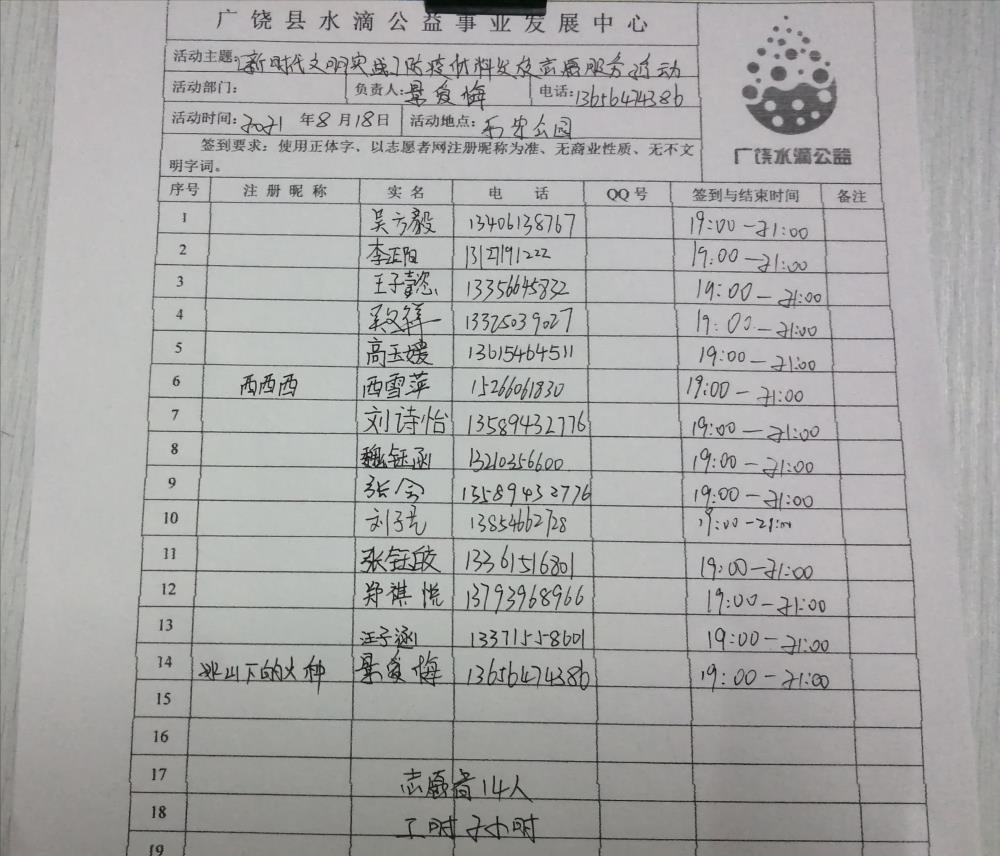 广饶县水滴公益事业发展中心
活动主题:[新时代文明实践]防疫材料发放志愿服务活动
活动部门: 负责人:景爱梅 电话:13656474386
活动时间:2021年8月18日 活动地点:乐安公园
签到要求：使用正体字、以志愿者网注册昵称为准、无商业性质、无不文
明字词。
广饶水滴公益
序号 注册昵称 实名 电话 QQ号 签到与结束时间 备注
1 吴方毅 13406138767 19:00-21:00
2 李正阳 13127191222 19:00-21:00
3 王子懿 13356645832 19:00-21:00
4 13325039027 19:00-21:00
5 高玉媛 13615464511 19:00-21:00
6 西西西 西雪萍 15266061830 19:00-21:00
7 刘诗怡 13589432776 19:00-21:00
8 魏钰函 13210356600 19:00-21:00
9 张会 13589432776 19:00-21:00
10 刘子元 13854662728 19:00-21:00
11 张钰皎 13361516801 19:00-21:00
12 郑祺悦 13793968966 19:00-21:00
13 汪子涵 13371558601 19:00-21:00
14 冰山下的火种 景爱梅 13656474386 19:00-21:00
15
16
17 志愿者14人
18 工时2小时
19